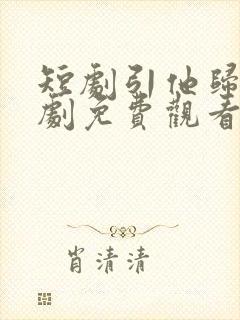 短劇引他歸
劇免費觀看
肖清清